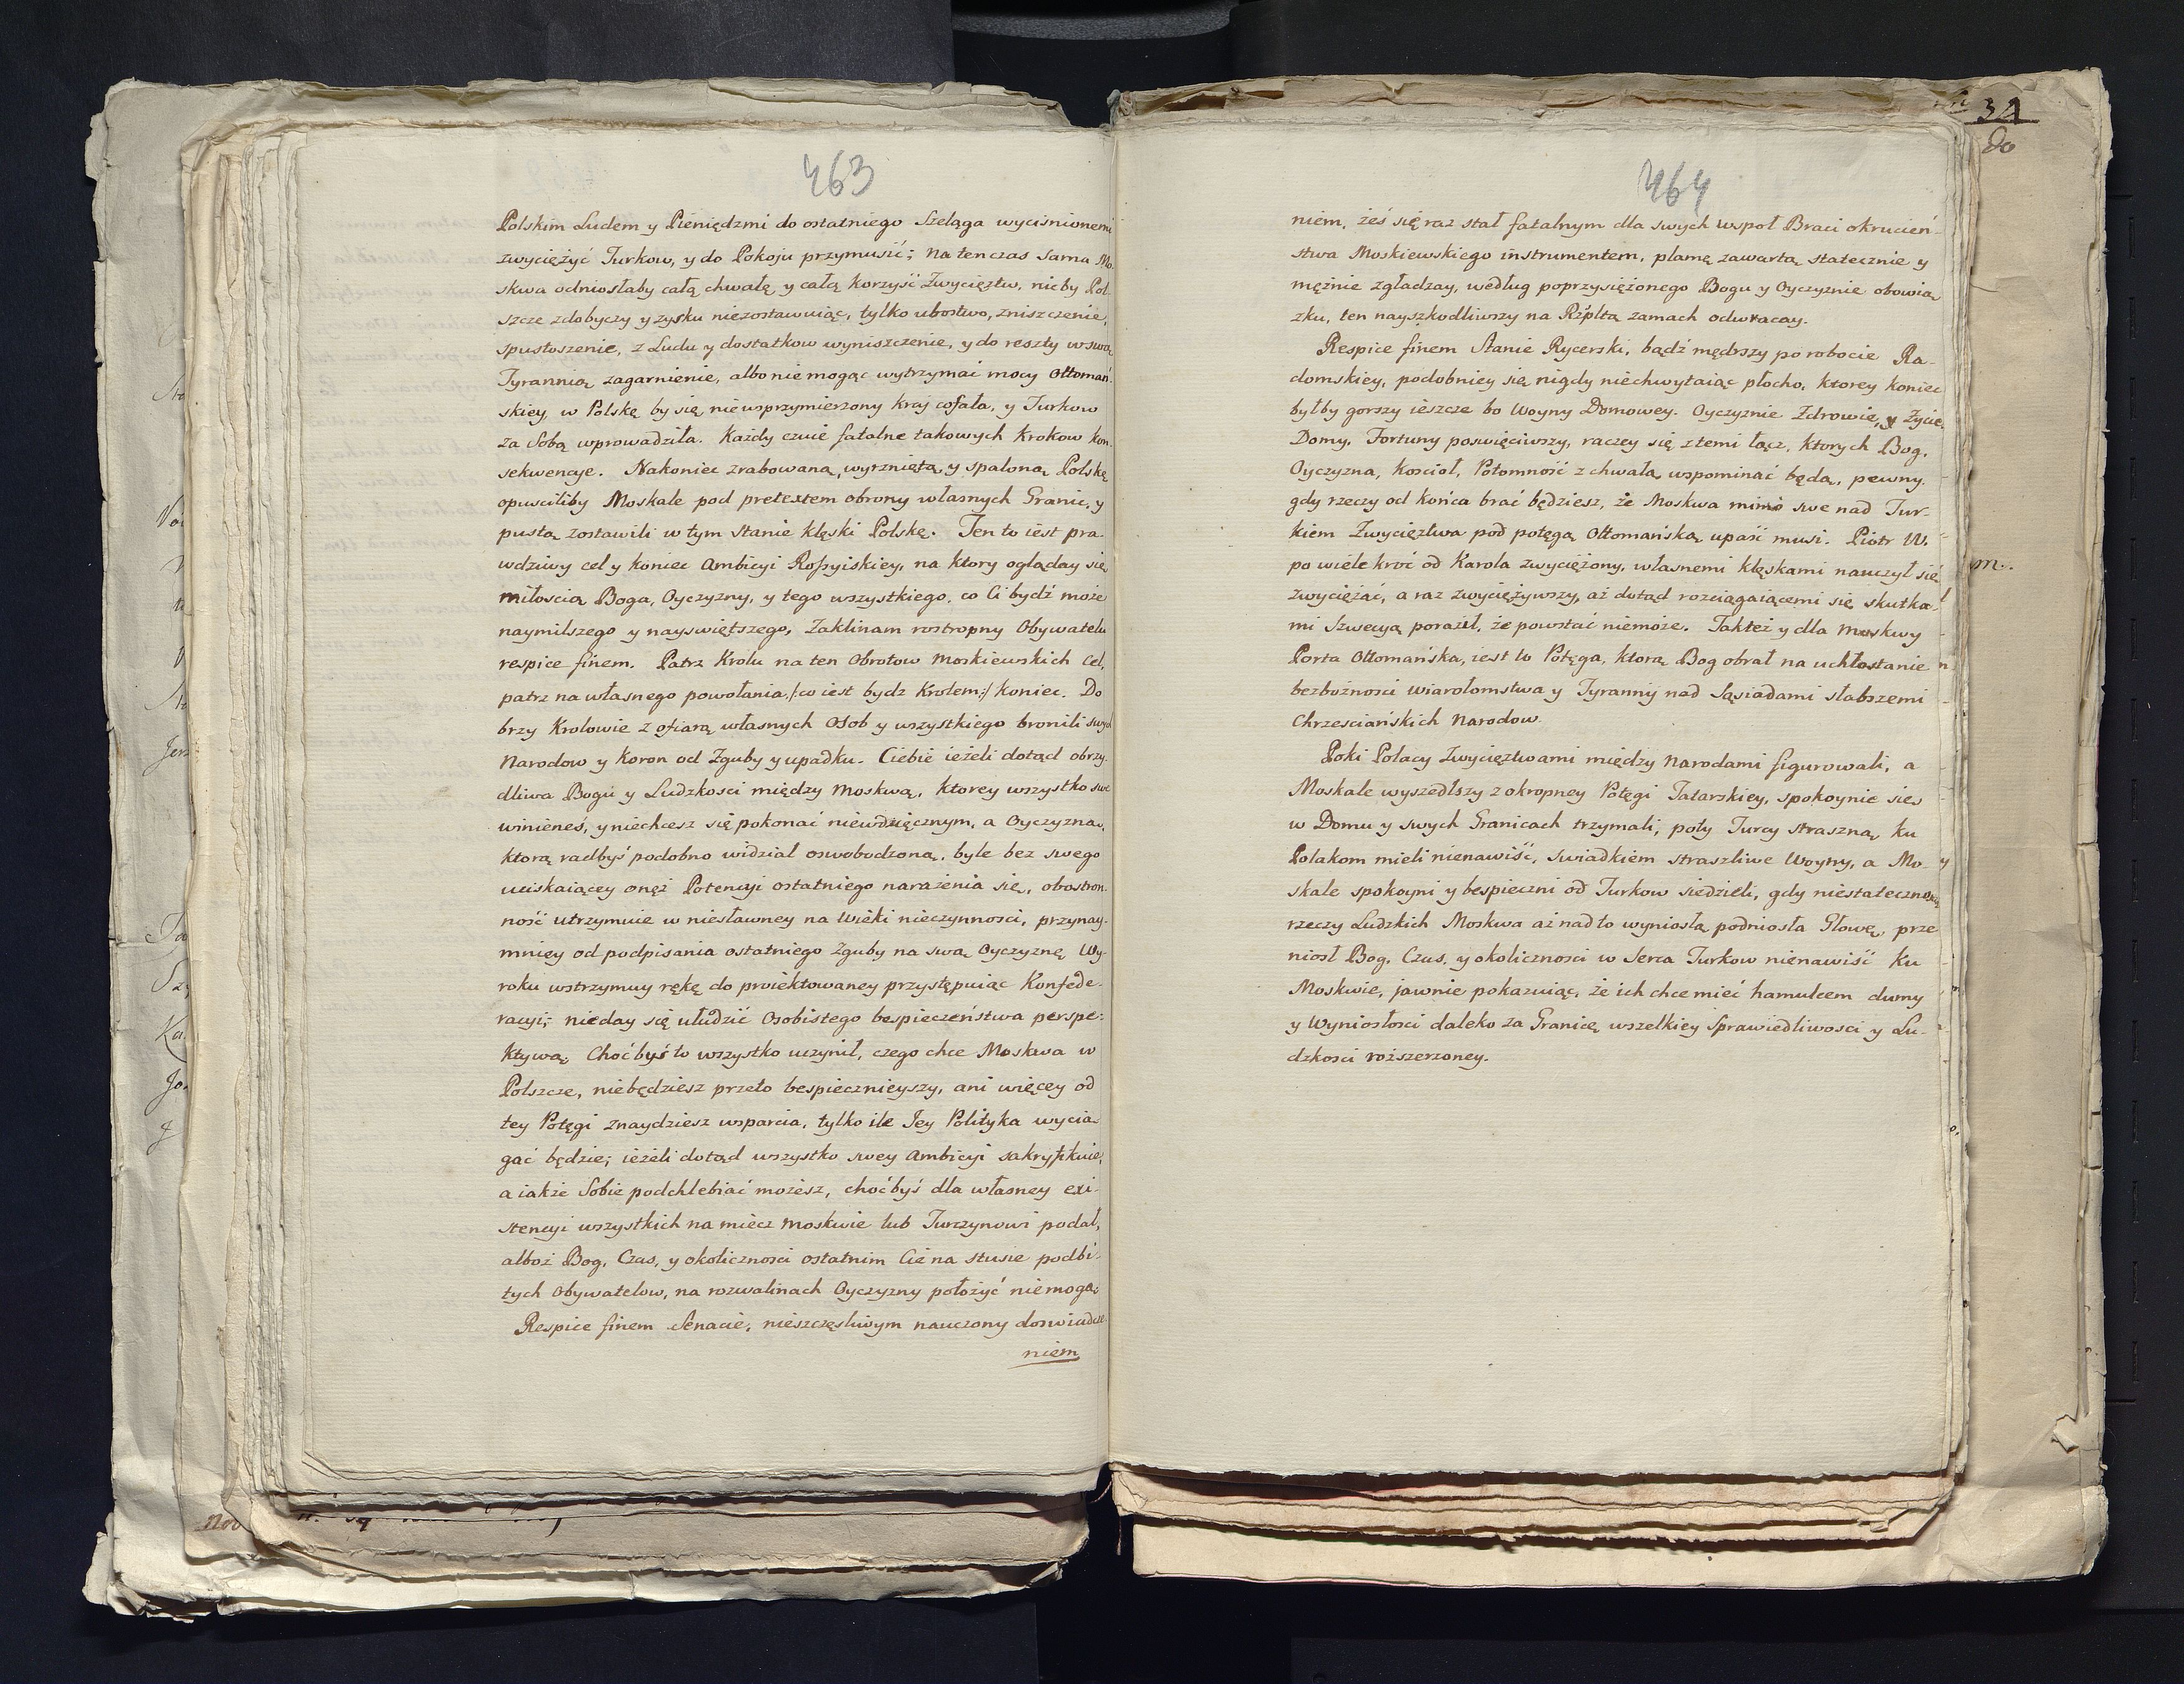 463
Polskim Ludem y Pieniędzmi do ostatniego Szeląga wycisnionemi
zwyciężyć Turkow, y do Pokoju przymusić; na ten czas sama Mo-
skwa odniosłaby całą chwałę y całą Korzyść Zwycięztw, nicby Pol-
szcze zdobyczy y zysku niezostawuiąc, tylko ubostwo, zniszczenie,
spustoszenie, z Ludu y dostatkow wyniszczenie, y do reszty w swą
Tyrannią zagarnienie, albo nie mogąc wytrzymać mocy Ottomań-
skiey w Polskę by się niewsprzymierzony kraj cofała, y Turkow
za Sobą wprowadziła. Każdy czuie fatalne takowych Krokow kon-
sekwencye. Nakoniec zrabowaną, wyrzniętą, y spaloną Polskę
opusciliby Moskale pod pretextem obrony własnych Granic, y
pustą zostawili w tym stanie klęski Polskę. Ten to iest pra-
wdziwy cel y koniec Ambicyi Rossyiskiey, na ktory ogląday się
miłoscią Boga, Oyczyzny, y tego wszystkiego, co Ci bydź może
naymilszego y nayswiętszego, Zaklinam rostropny Obywatelu
respice finem. Patrz Krolu na ten Obrotow Moskiewskich Cel,
patrz na własnego powołania /:co iest bydz Krolem:/ koniec. Do
brzy Krolowie z ofiarą własnych Osob y wszystkiego bronili swych
Narodow y Koron od Zguby y upadku. Ciebie ieżeli dotąd obrzy-
dliwa Bogu y Ludzkosci między Moskwą, ktorey wszystko swe
winieneś, y niechcesz się pokonać niewdzięcznym, a Oyczyzną,
ktorą radbyś podobno widział oswobodzoną, byle bez swego
uciskaiącey onęż Potencyi ostatniego narażenia się, obostron-
ność utrzymuie w niesławney na Wieki nieczynnosci, przynay-
mniey od podpisania ostatniego Zguby na swą Oyczyznę Wy-
roku wstrzymuy rękę do proiektowaney przystępuiąc Konfede-
racyi; nieday się ułudzić Osobistego bespieczeństwa perspe-
ktywą, Choćbyś to wszystko uczynił, czego chce Moskwa w
Polszcze, niebędziesz przeto bespiecznieyszy, ani więcey od
tey Potęgi znaydziesz wsparcia, tylko ile Jey Polityka wycią-
gać będzie; ieżeli dotąd wszystko swey Ambicyi sakryfikuie,
a iakże Sobie podchlebiać możesz, choćbyś dla własney exi-
stencyi wszystkich na miecz Moskwie lub Turczynowi podał,
alboż Bog, Czas, y okolicznosci ostatnim Cie na stusie podbi-
tych Obywatelow, na rozwalinach Oyczyzny położyć niemogą.
Respice finem Senacie, nieszczęsliwym nauczony doswiadcze-
niem
464
niem, żeś się raz stał fatalnym dla swych wspoł Braci okrucień-
stwa Moskiewskiego instrumentem, plamę zawartą statecznie y
mężnie zgładzay, według poprzysiężonego Bogu y Oyczyznie obowią-
zku, ten nayszkodliwszy na Rzplta zamach odwracay.
Respice finem Stanie Rycerski, bądź mędrszy po robocie Ra-
domskiey, podobniey się nigdy niechwytaiąc płocho, ktorey koniec
byłby gorszy ieszcze bo Woyny Domowey. Oyczyznie Zdrowie, y Życie,
Domy, Fortuny poswięciwszy, raczey się z temi łącz, ktorych Bog,
Oyczyzna, Kosciół, Potomność z chwałą wspominać będą, pewny,
gdy rzeczy od końca brać będziesz, że Moskwa mimo swe nad Tur-
kiem Zwycięztwa pod potęgą Ottomańską upaść musi. Piotr W.
po wiele kroć od Karola zwyciężony, własnemi klęskami nauczył się
zwyciężać, a raz zwyciężywszy, aż dotąd rozciągaiącemi się skutka-
mi Szwecyą poraził, że powstać niemoże. Takteż y dla Moskwy
Porta Ottomańska, iest to Potęga, ktorą Bog obrał na uchłostanie
bezbożnosci wiarołomstwa y Tyranny nad Sąsiadami słabszemi
Chrzesciańskich Narodow.
Poki Polacy Zwycięztwami między Narodami figurowali, a
Moskale wyszedłszy z okropney Potęgi Tatarskiey, spokoynie się
w Domu y swych Granicach trzymali, poty Turcy straszną ku
Polakom mieli nienawiść, swiadkiem straszliwe Woyny, a Mo-
skale spokoyni y bespieczni od Turkow siedzieli, gdy niestatecznością
rzeczy Ludzkich Moskwa aż nad to wyniosłą podniosła Głowę, prze
niosł Bog, Czas, y okolicznosci w Serca Turkow nienawiść ku
Moskwie, jawnie pokazuiąc, że ich chce mieć hamulcem dumy
y Wyniosłosci daleko za Granicę wszelkiey Sprawiedliwosci y Lu-
dzkosci rozszerzoney.